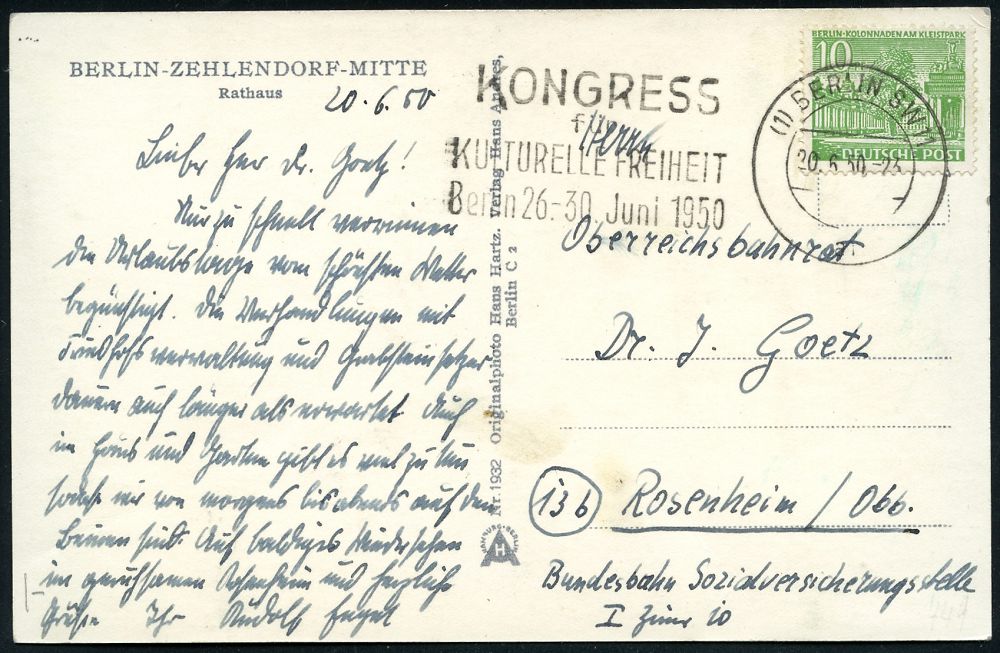 BERLIN-ZEHLENDORF-MITTE
Rathaus
20.6.50
Lieber Herr Dr. Goetz!
Nur zu schnell verrinnen
die Urlaubstage vom schönsten Wetter
begünstigt. Die Verhandlungen mit
Friedhofsverwaltung und Grabsteinsetzer
dauern auch länger als erwartet. Auch
im Haus und Garten gibt es viel zu tun
sodass wir von morgens bis abends auf den
Beinen sind. Auf baldiges Wiedersehen
im geruhsamen Rosenheim und herzliche
Grüße Ihr Rudolf Engel
Nr. 1932 Originalphoto Hans Hartz. Verlag Hans Andres,
Berlin C 2
HAMBURG-BERLIN
H
KONGRESS
für
KULTURELLE FREIHEIT
Berlin 26.-30. Juni 1950
BERLIN-KOLONNADEN AM KLEISTPARK
10
DEUTSCHE POST
(1) BERLIN SW 11
20.6.50
Herrn
Oberreichsbahnrat
Dr. J. Goetz
13b Rosenheim / Obb.
Bundesbahn Sozialversicherungsstelle
I Zimr 10